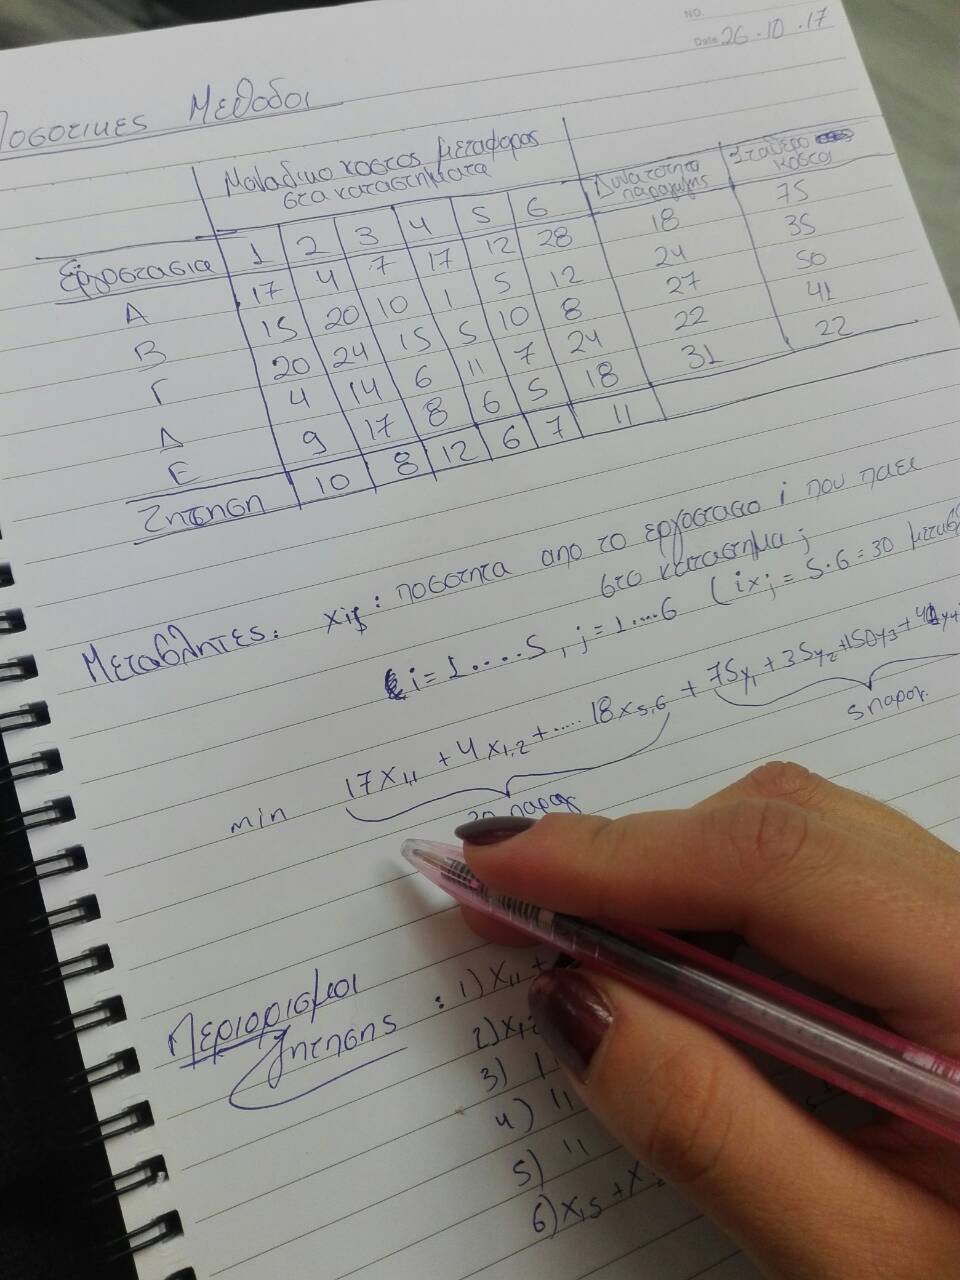 NO.
Date 26.10.17
Ποσοτικες Μεθοδοι
Μοναδικο κοστος μεταφορας
στα καταστηματα
Δυνατοτητα
παραγωγης
Σταθερο
κοστος
Εργοστασια 1 2 3 4 5 6
Α 17 4 7 17 12 28 18 75
Β 15 20 10 1 5 12 24 35
Γ 20 24 15 5 10 8 27 50
Δ 4 14 6 11 7 24 22 41
Ε 9 17 8 6 5 18 31 22
Ζητηση 10 8 12 6 7 11
Μεταβλητες: xij : ποσοτητα απο το εργοστασιο i που παει
στο καταστημα j
i=1....5, j=1....6 (ixj=5·6=30 μεταβ
min 17x1,1 + 4x1,2 +..... 18x5,6 + 75y1 + 35y2 +150y3 + 41y4
30 παραγ. 5 παραγ.
Περιορισμοι
ζητησης : 1) x11 +
2) x12
3) 11
4) 11
5) 11
6) x15 + x